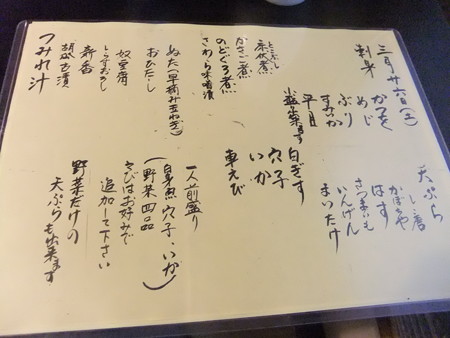 三月廿六日(土)
刺身
かつを
めじ
ぶり
すみいか
平貝
小盛出来ます
とこぶし
床伏煮
かさご煮
のどぐろ煮
さわら味噌漬
ぬた(早摘み玉ねぎ)
おひたし
奴豆腐
しらすおろし
新香
胡瓜古漬
つみれ汁
天ぷら
しし唐
かぼちゃ
はす
さつまいも
いんげん
まいたけ
白ぎす
穴子
いか
車えび
一人前盛り
(白身魚、穴子、いか
野菜四品)
えびはお好みで
追加して下さい
野菜だけの
天ぷらも出来ます